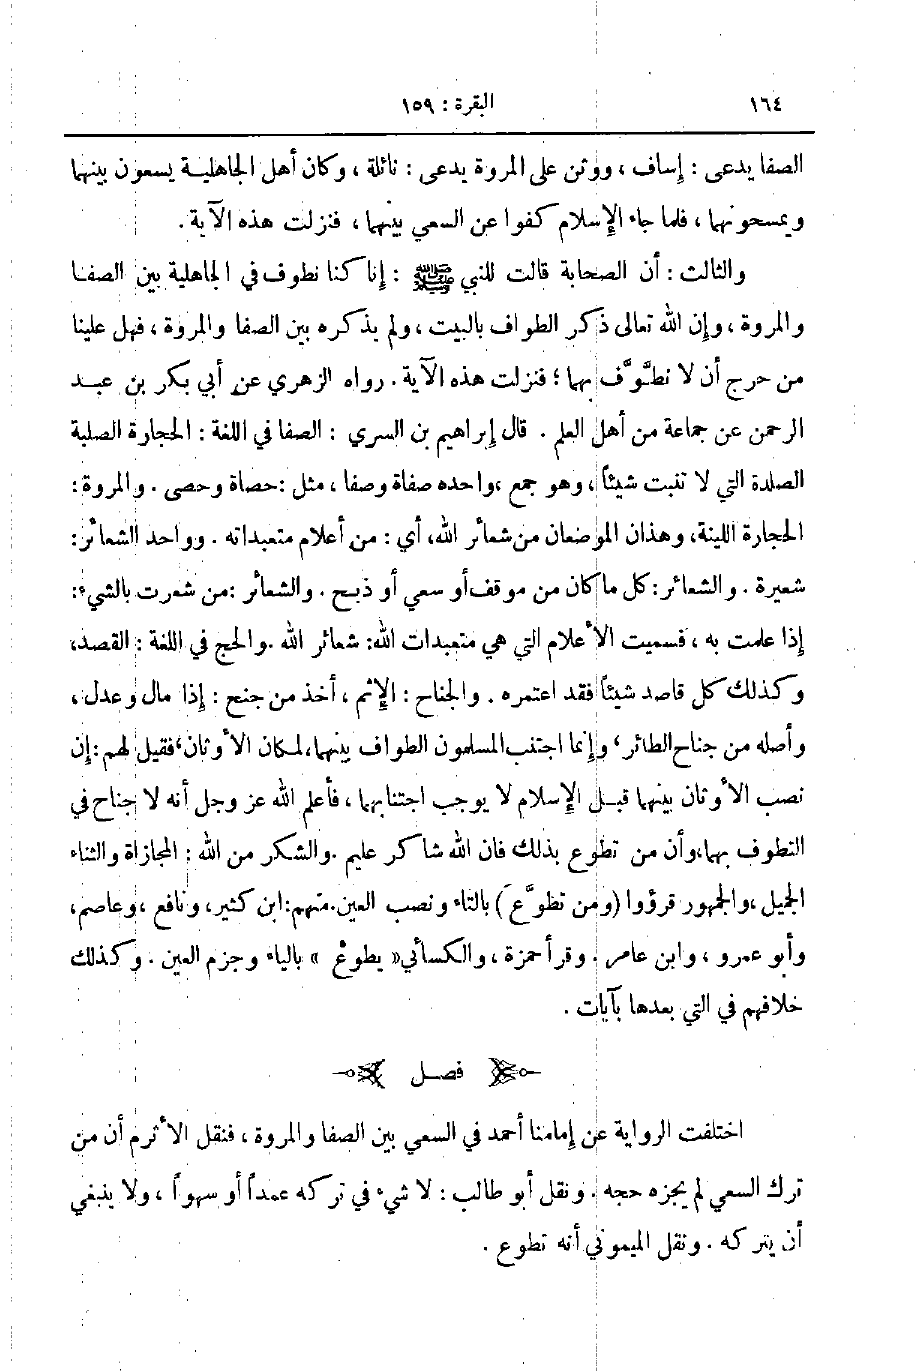 ١٦٤ البقرة : ١٥٩
الصفا يدعى : إساف ، ووثن على المروة يدعى : نائلة ، وكان أهل الجاهلية يسعون بينهما
ويمسحونهما ، فلما جاء الإسلام كفوا عن السعي بينهما ، فنزلت هذه الآية .
والثالث : أن الصحابة قالت للنبي ﷺ : إنا كنا نطوف في الجاهلية بين الصفا
والمروة ، وإن الله تعالى ذكر الطواف بالبيت ، ولم يذكره بين الصفا والمروة ، فهل علينا
من حرج أن لا نطَّوَّف بهما ؛ فنزلت هذه الآية . رواه الزهري عن أبي بكر بن عبد
الرحمن عن جماعة من أهل العلم . قال إبراهيم بن السري : الصفا في اللغة : الحجارة الصلبة
الصلدة التي لا تنبت شيئاً ، وهو جمع ، واحده صفاة وصفا ، مثل : حصاة وحصى . والمروة :
الحجارة اللينة ، وهذان الموضعان من شعائر الله ، أي : من أعلام متعبداته . وواحد الشعائر :
شعيرة . والشعائر : كل ما كان من موقف أو سعي أو ذبح . والشعائر : من شعرت بالشيء :
إذا علمت به ، فسميت الأعلام التي هي متعبدات الله : شعائر الله . والحج في اللغة : القصد ،
وكذلك كل قاصد شيئاً فقد اعتمره . والجناح : الإثم ، أخذ من جنح : إذا مال وعدل ،
وأصله من جناح الطائر ، وإنما اجتنب المسلمون الطواف بينهما ، لمكان الأوثان ، فقيل لهم : إن
نصب الأوثان بينهما قبل الإسلام لا يوجب اجتنابهما ، فأعلم الله عز وجل أنه لا جناح في
التطوف بهما ، وأن من تطوع بذلك فان الله شاكر عليم . والشكر من الله : المجازاة والثناء
الجميل ، والجمهور قرؤوا (ومن تطوَّعَ) بالتاء ونصب العين . منهم : ابن كثير ، ونافع ، وعاصم ،
وأبو عمرو ، وابن عامر . وقرأ حمزة ، والكسائي « يطوعْ » بالياء وجزم العين . وكذلك
خلافهم في التي بعدها بآيات .
فصل
اختلفت الرواية عن إمامنا أحمد في السعي بين الصفا والمروة ، فنقل الأثرم أن من
ترك السعي لم يجزه حجه . ونقل أبو طالب : لا شيء في تركه عمداً أو سهواً ، ولا ينبغي
أن يتركه . ونقل الميموني أنه تطوع .